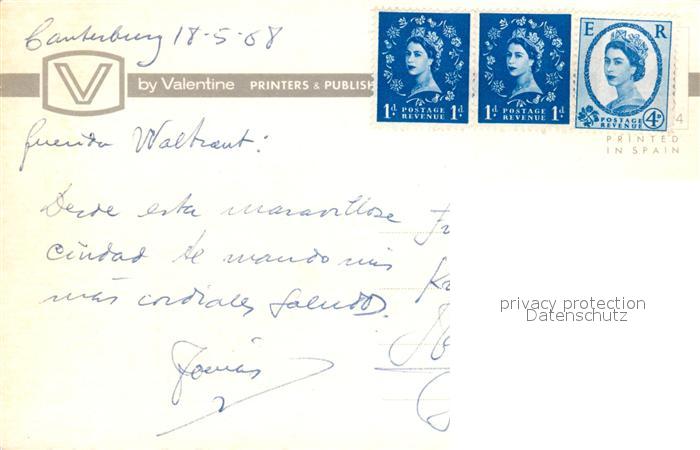 Canterbury 18-5-68
V
by Valentine PRINTERS & PUBLISH
1d POSTAGE REVENUE 1d
1d POSTAGE REVENUE 1d
E R
POSTAGE REVENUE 4d
4
PRINTED
IN SPAIN
Querida Waltraut:
Desde esta maravillosa
ciudad te mando mis
más cordiales saludos.
Tomás
privacy protection
Datenschutz